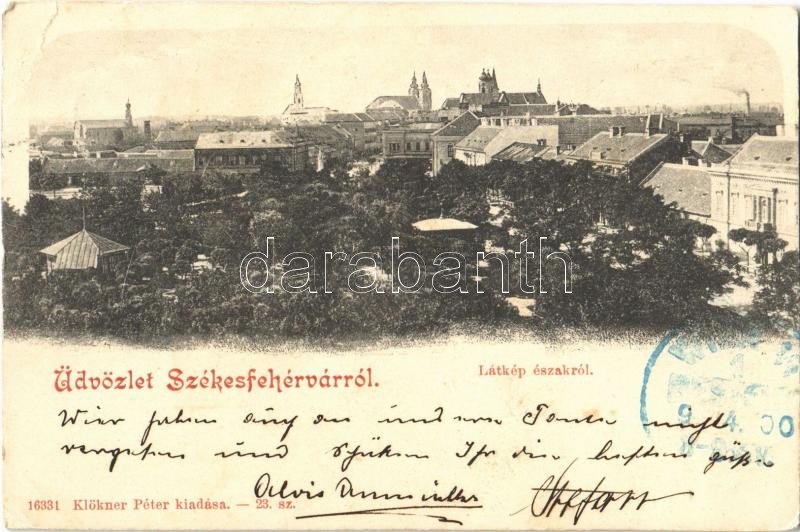 darabanth
Üdvözlet Székesfehérvárról.
Látkép északról.
Wir haben auch an unsere Tante nicht
vergessen und schicken Ihr die besten Grüße
16331 Klökner Péter kiadása. — 23. sz.